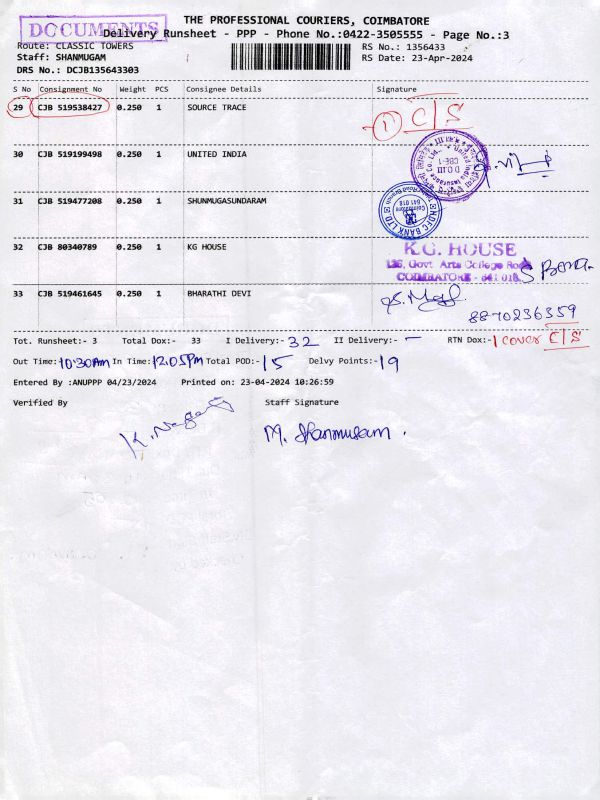 THE PROFESSIONAL COURIERS, COIMBATORE
DOCUMENTS
Delivery Runsheet - PPP - Phone No.:0422-3505555 - Page No.:3
Route: CLASSIC TOWERS
RS No.: 1356433
Staff: SHANMUGAM
RS Date: 23-Apr-2024
DRS No.: DCJB135643303
S No Consignment No Weight PCS Consignee Details Signature
29 CJB 519538427 0.250 1 SOURCE TRACE
1 C/S
30 CJB 519199498 0.250 1 UNITED INDIA
United India Insurance Co. Ltd.
D.O.III
CBE-1
31 CJB 519477208 0.250 1 SHUNMUGASUNDARAM
HDFC BANK LTD
Coimbatore
641 018
32 CJB 80340789 0.250 1 KG HOUSE
K.G. HOUSE
136, Govt Arts College Road
COIMBATORE - 641 018
33 CJB 519461645 0.250 1 BHARATHI DEVI
8870236359
Tot. Runsheet:- 3 Total Dox:- 33 I Delivery:- 32 II Delivery:- - RTN Dox:- 1 cover C/S
Out Time: 10:30Am In Time: 12.05PM Total POD:- 15 Delvy Points:- 19
Entered By :ANUPPP 04/23/2024 Printed on: 23-04-2024 10:26:59
Verified By Staff Signature
K. Nagaraj M. Shanmugam.